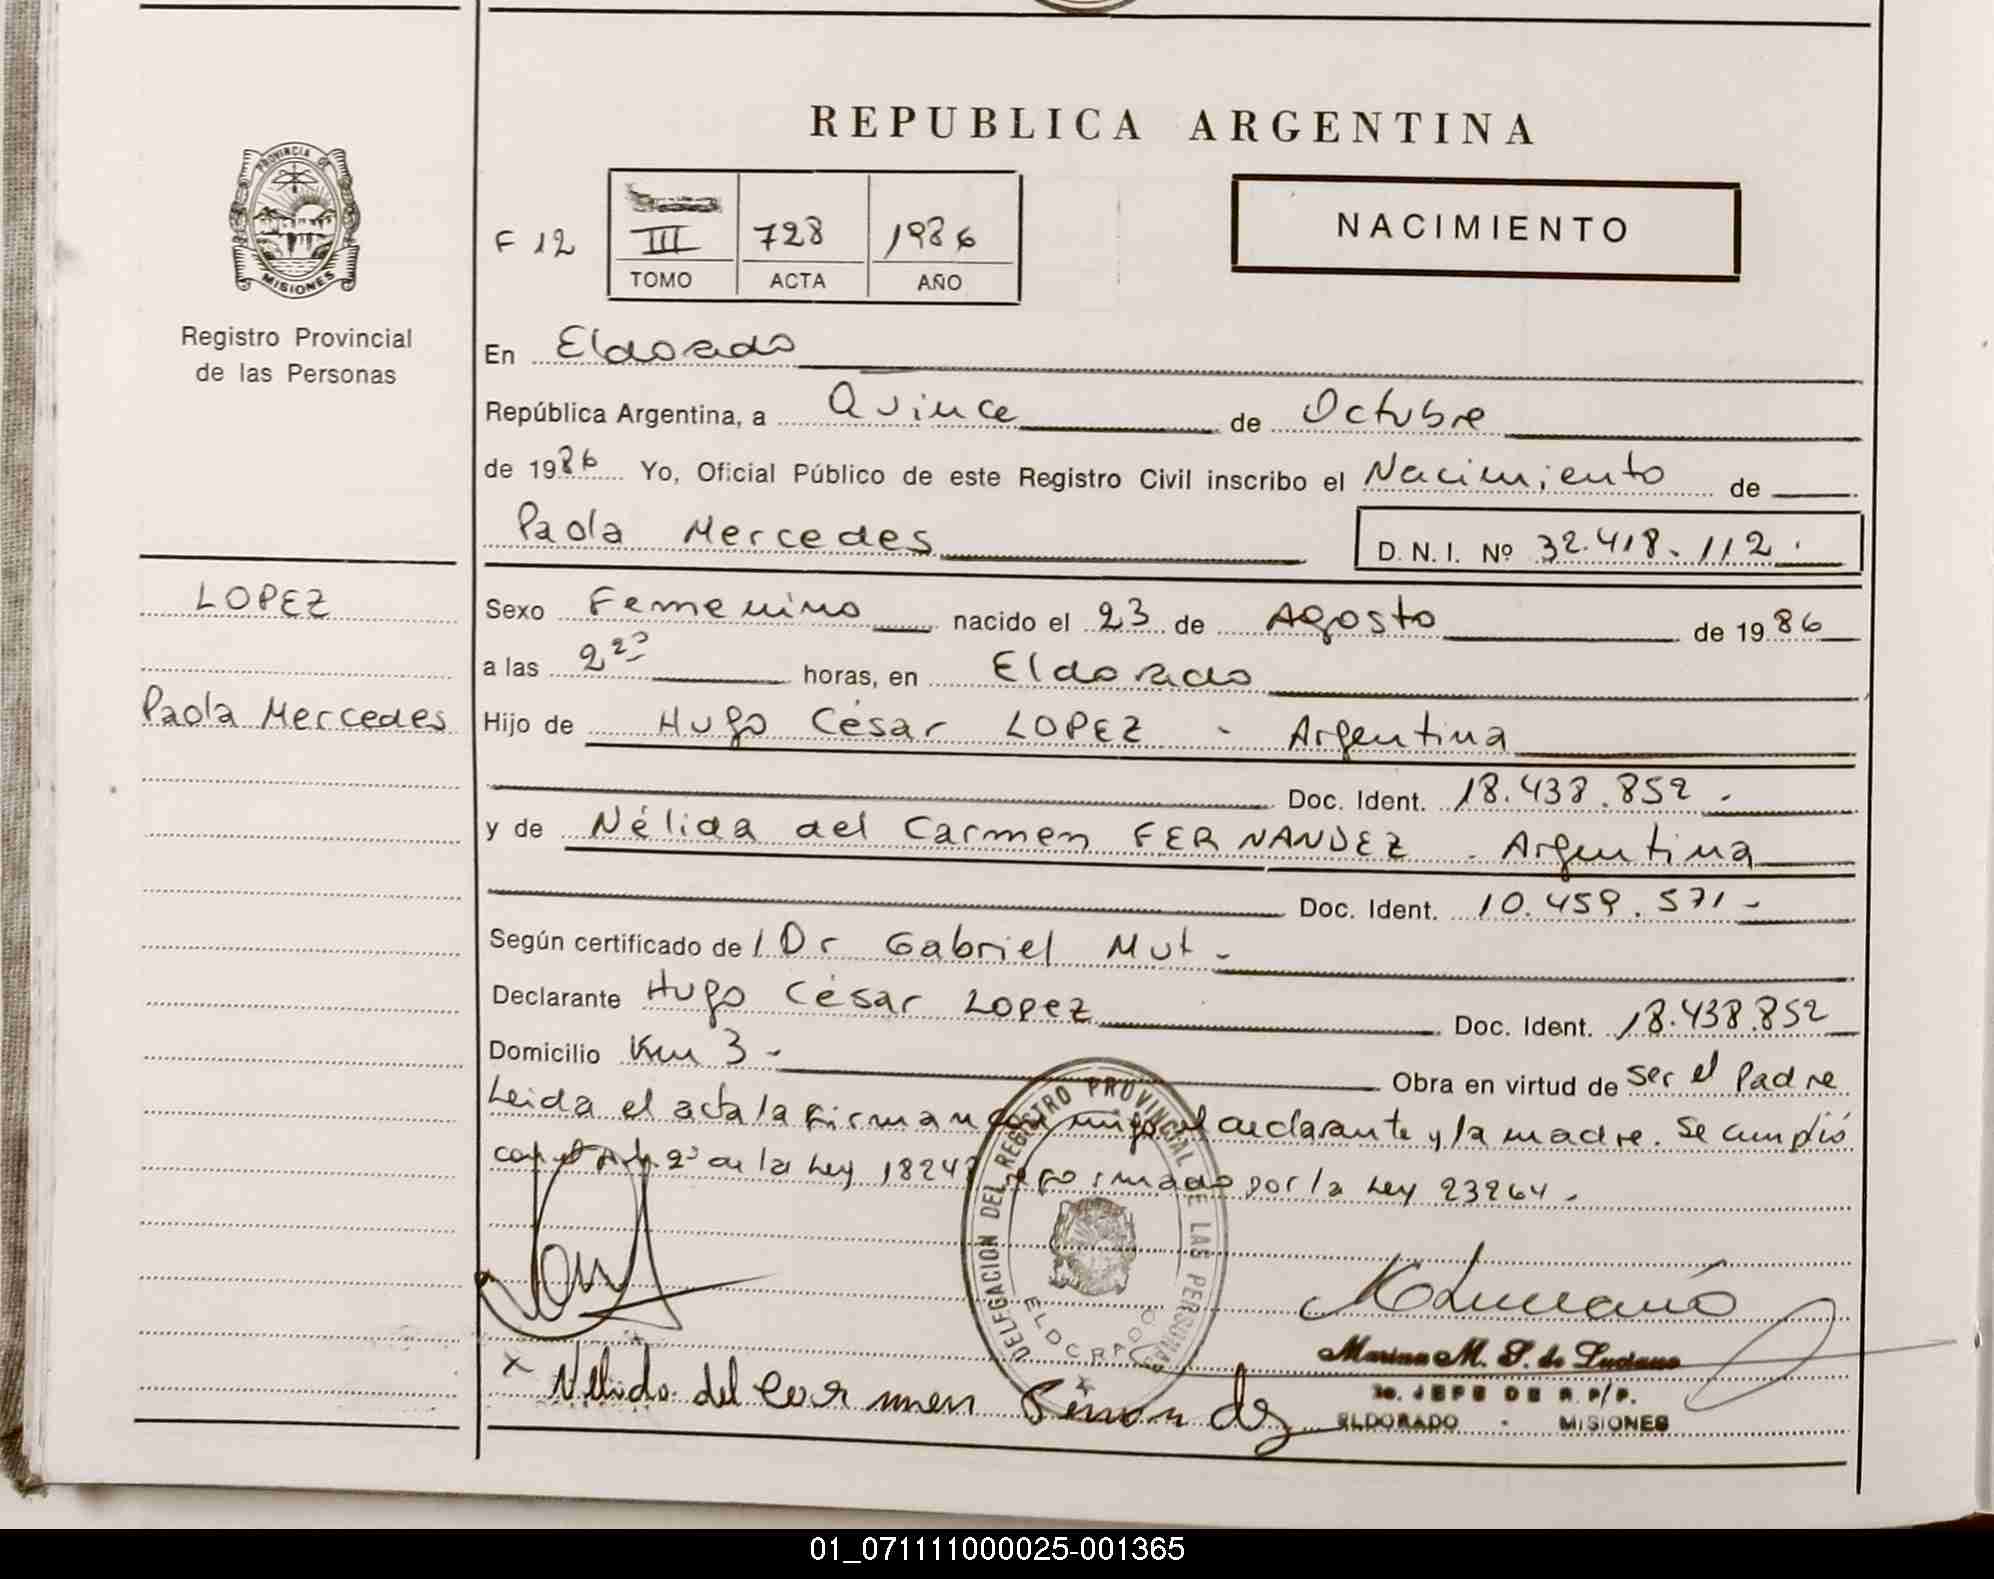 REPUBLICA ARGENTINA
PROVINCIA DE
MISIONES
Registro Provincial
de las Personas
F 12
III 728 1986
TOMO ACTA AÑO
NACIMIENTO
En Eldorado
República Argentina, a Quince de Octubre
de 1986 Yo, Oficial Público de este Registro Civil inscribo el Nacimiento de
Paola Mercedes
D.N.I. Nº 32.418.112.
LOPEZ
Paola Mercedes
Sexo Femenino nacido el 23 de Agosto de 1986
a las 2 horas, en Eldorado
Hijo de Hugo César LOPEZ - Argentina
Doc. Ident. 18.438.852 -
y de Nélida del Carmen FERNANDEZ - Argentina
Doc. Ident. 10.459.571-
Según certificado de l Dr Gabriel Mut -
Declarante Hugo César Lopez Doc. Ident. 18.438.852
Domicilio Km 3 - Obra en virtud de ser el Padre
Leida el acta la firman conmigo el declarante y la madre. Se cumplió
con el Art. 2º de la Ley 18248 reformado por la Ley 23264 -
DELEGACION DEL REGISTRO PROVINCIAL DE LAS PERSONAS
ELDORADO
Marina M. S. de Luciano
JEFE DE R.P/P.
ELDORADO - MISIONES
x Nelida del Carmen Fernandez
01_071111000025-001365